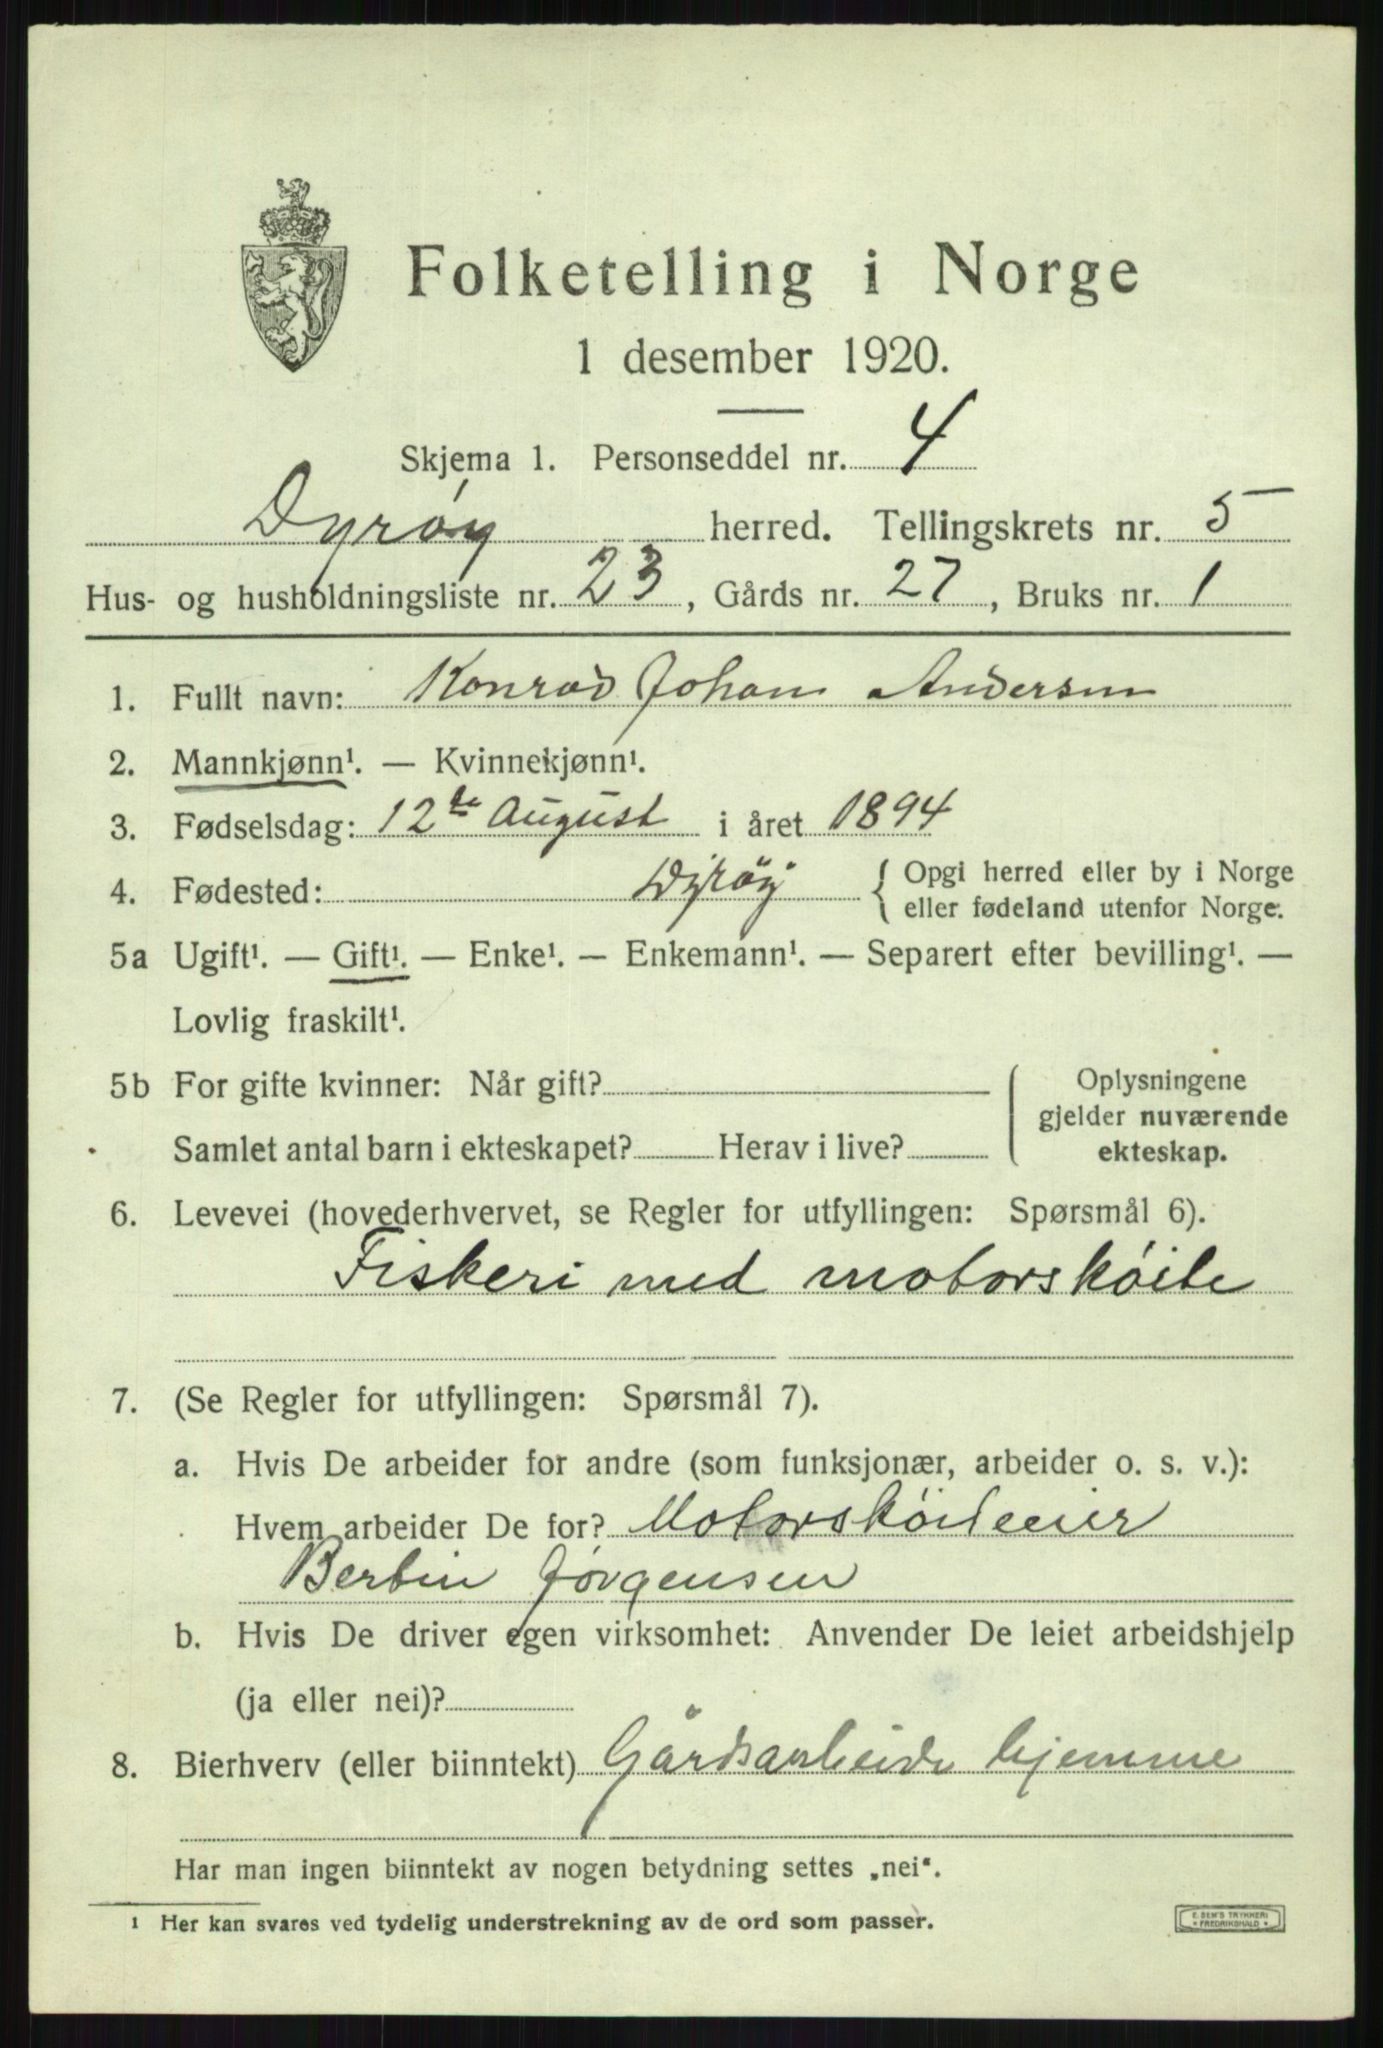 Folketelling i Norge
1 desember 1920.
Skjema 1. Personseddel nr. 4
Dyrøy herred. Tellingskrets nr. 5
Hus- og husholdningsliste nr. 23, Gårds nr. 27, Bruks nr. 1
1. Fullt navn: Konrad Johan Andersen
2. Mannkjønn¹. — Kvinnekjønn¹.
3. Fødselsdag: 12te August i året 1894
4. Fødested: Dyrøy { Opgi herred eller by i Norge
eller fødeland utenfor Norge.
5a Ugift¹. — Gift¹. — Enke¹. — Enkemann¹. — Separert efter bevilling¹. —
Lovlig fraskilt¹.
5b For gifte kvinner: Når gift?
Samlet antal barn i ekteskapet? Herav i live?
Oplysningene
gjelder nuværende
ekteskap.
6. Levevei (hovederhvervet, se Regler for utfyllingen: Spørsmål 6).
Fiskeri med motorskøite
7. (Se Regler for utfyllingen: Spørsmål 7).
a. Hvis De arbeider for andre (som funksjonær, arbeider o. s. v.):
Hvem arbeider De for? Motorskøiteeier
Bertin Jørgensen
b. Hvis De driver egen virksomhet: Anvender De leiet arbeidshjelp
(ja eller nei)?
8. Bierhverv (eller biinntekt) Gårdsarbeide hjemme
Har man ingen biinntekt av nogen betydning settes „nei“.
1 Her kan svares ved tydelig understrekning av de ord som passer.
E. SEM'S TRYKKERI
* FREDRIKSHALD *